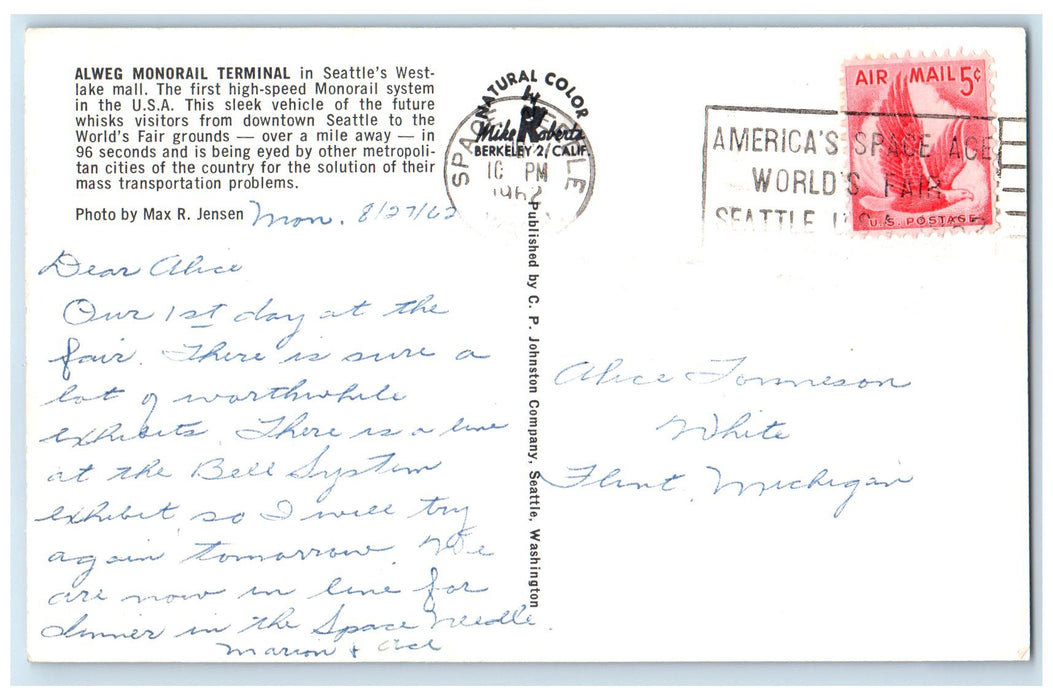 ALWEG MONORAIL TERMINAL in Seattle's West-
lake mall. The first high-speed Monorail system
in the U.S.A. This sleek vehicle of the future
whisks visitors from downtown Seattle to the
World's Fair grounds — over a mile away — in
96 seconds and is being eyed by other metropoli-
tan cities of the country for the solution of their
mass transportation problems.
Photo by Max R. Jensen
Mon. 8/27/62
Dear Alice
Our 1st day at the
fair. There is sure a
lot of worthwhile
exhibits. There is a line
at the Bell System
exhibit, so I will try
again tomorrow. We
are now in line for
dinner in the Space Needle.
Marion &
NATURAL COLOR
by
Mike Roberts
BERKELEY 2, CALIF.
PM
1962
Published by C. P. Johnston Company, Seattle, Washington
AMERICA'S SPACE AGE
WORLD'S FAIR
SEATTLE U.S.A.
AIR MAIL 5¢
U.S. POSTAGE
Alice Tonneson
White
Flint, Michigan